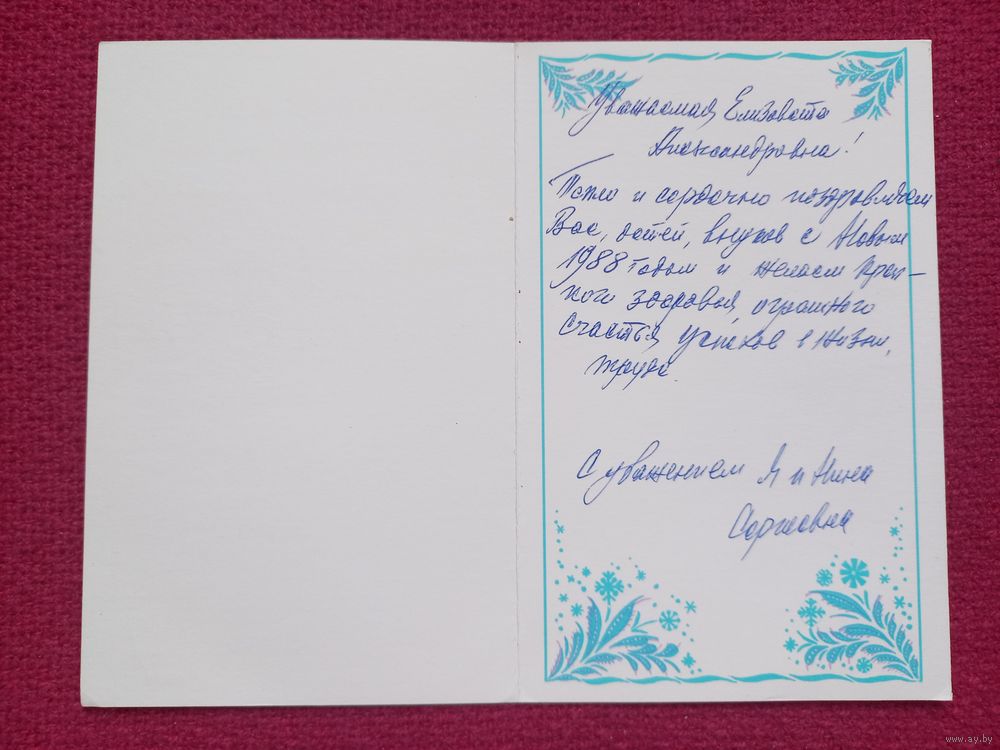 Уважаемая Елизавета
Александровна!
Тепло и сердечно поздравляем
Вас, детей, внуков с Новым
1988 годом и желаем креп-
кого здоровья, огромного
счастья успехов в жизни,
труде.
С уважением Я и Нина
Сергеевна
www.ay.by